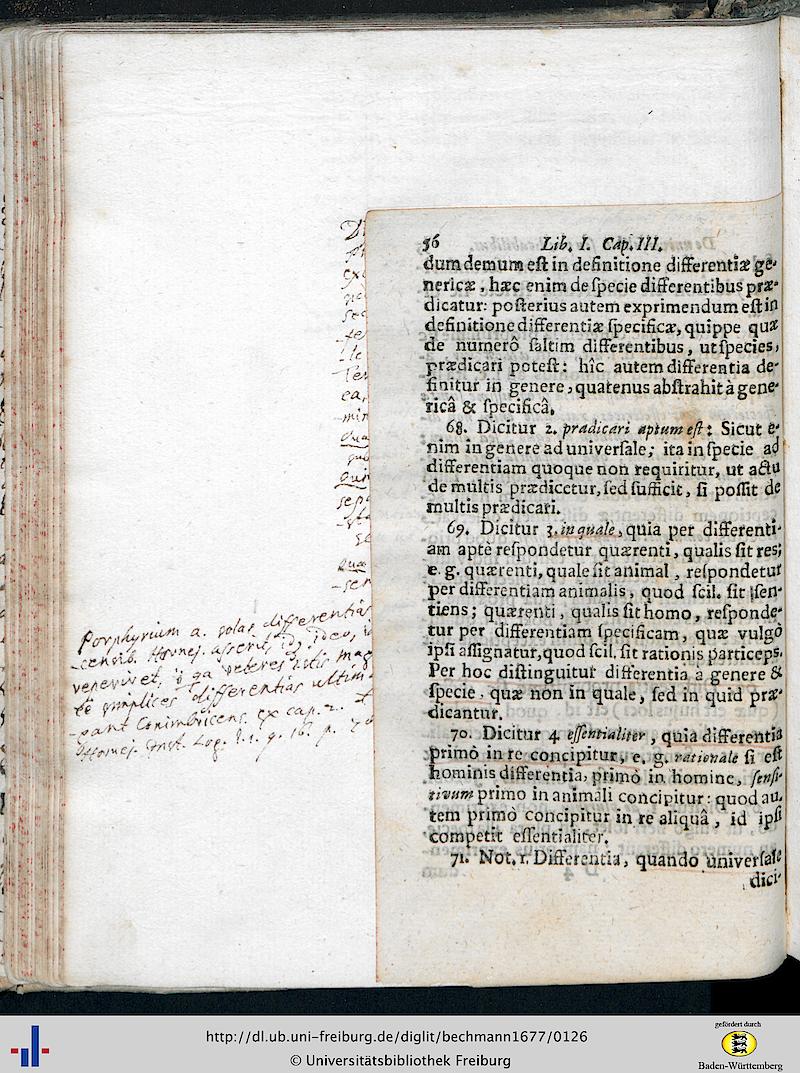 56 Lib. I. Cap. III.
dum demum est in definitione differentiæ ge-
nericæ, hæc enim de specie differentibus præ-
dicatur: posterius autem exprimendum est in
definitione differentiæ specificæ, quippe quæ
de numerô saltim differentibus, ut species,
prædicari potest: hîc autem differentia de-
finitur in genere, quatenus abstrahit à gene-
ricâ & specificâ.
68. Dicitur 2. prædicari aptum est: Sicut e-
nim in genere ad universale; ita in specie ad
differentiam quoque non requiritur, ut actu
de multis prædicetur, sed sufficit, si possit de
multis prædicari.
69. Dicitur 3. in quale, quia per differenti-
am aptè respondetur quærenti, qualis sit res;
e. g. quærenti, quale sit animal, respondetur
per differentiam animalis, quod scil. sit sen-
tiens; quærenti, qualis sit homo, responde-
tur per differentiam specificam, quæ vulgò
ipsi assignatur, quod scil. sit rationis particeps.
Per hoc distinguitur differentia a genere &
specie, quæ non in quale, sed in quid præ-
dicantur.
70. Dicitur 4. essentialiter, quia differentia
primò in re concipitur, e. g. rationale si est
hominis differentia, primò in homine, sensi-
tivum primo in animali concipitur: quod au-
tem primò concipitur in re aliquâ, id ipsi
competit essentialiter.
71. Not. 1. Differentia, quando universale
dici-
Porphyrium a. solas differentias
veteres
simplices differentias
Conimbricens. ex cap. 2.
http://dl.ub.uni-freiburg.de/diglit/bechmann1677/0126
© Universitätsbibliothek Freiburg
gefördert durch
Baden-Württemberg